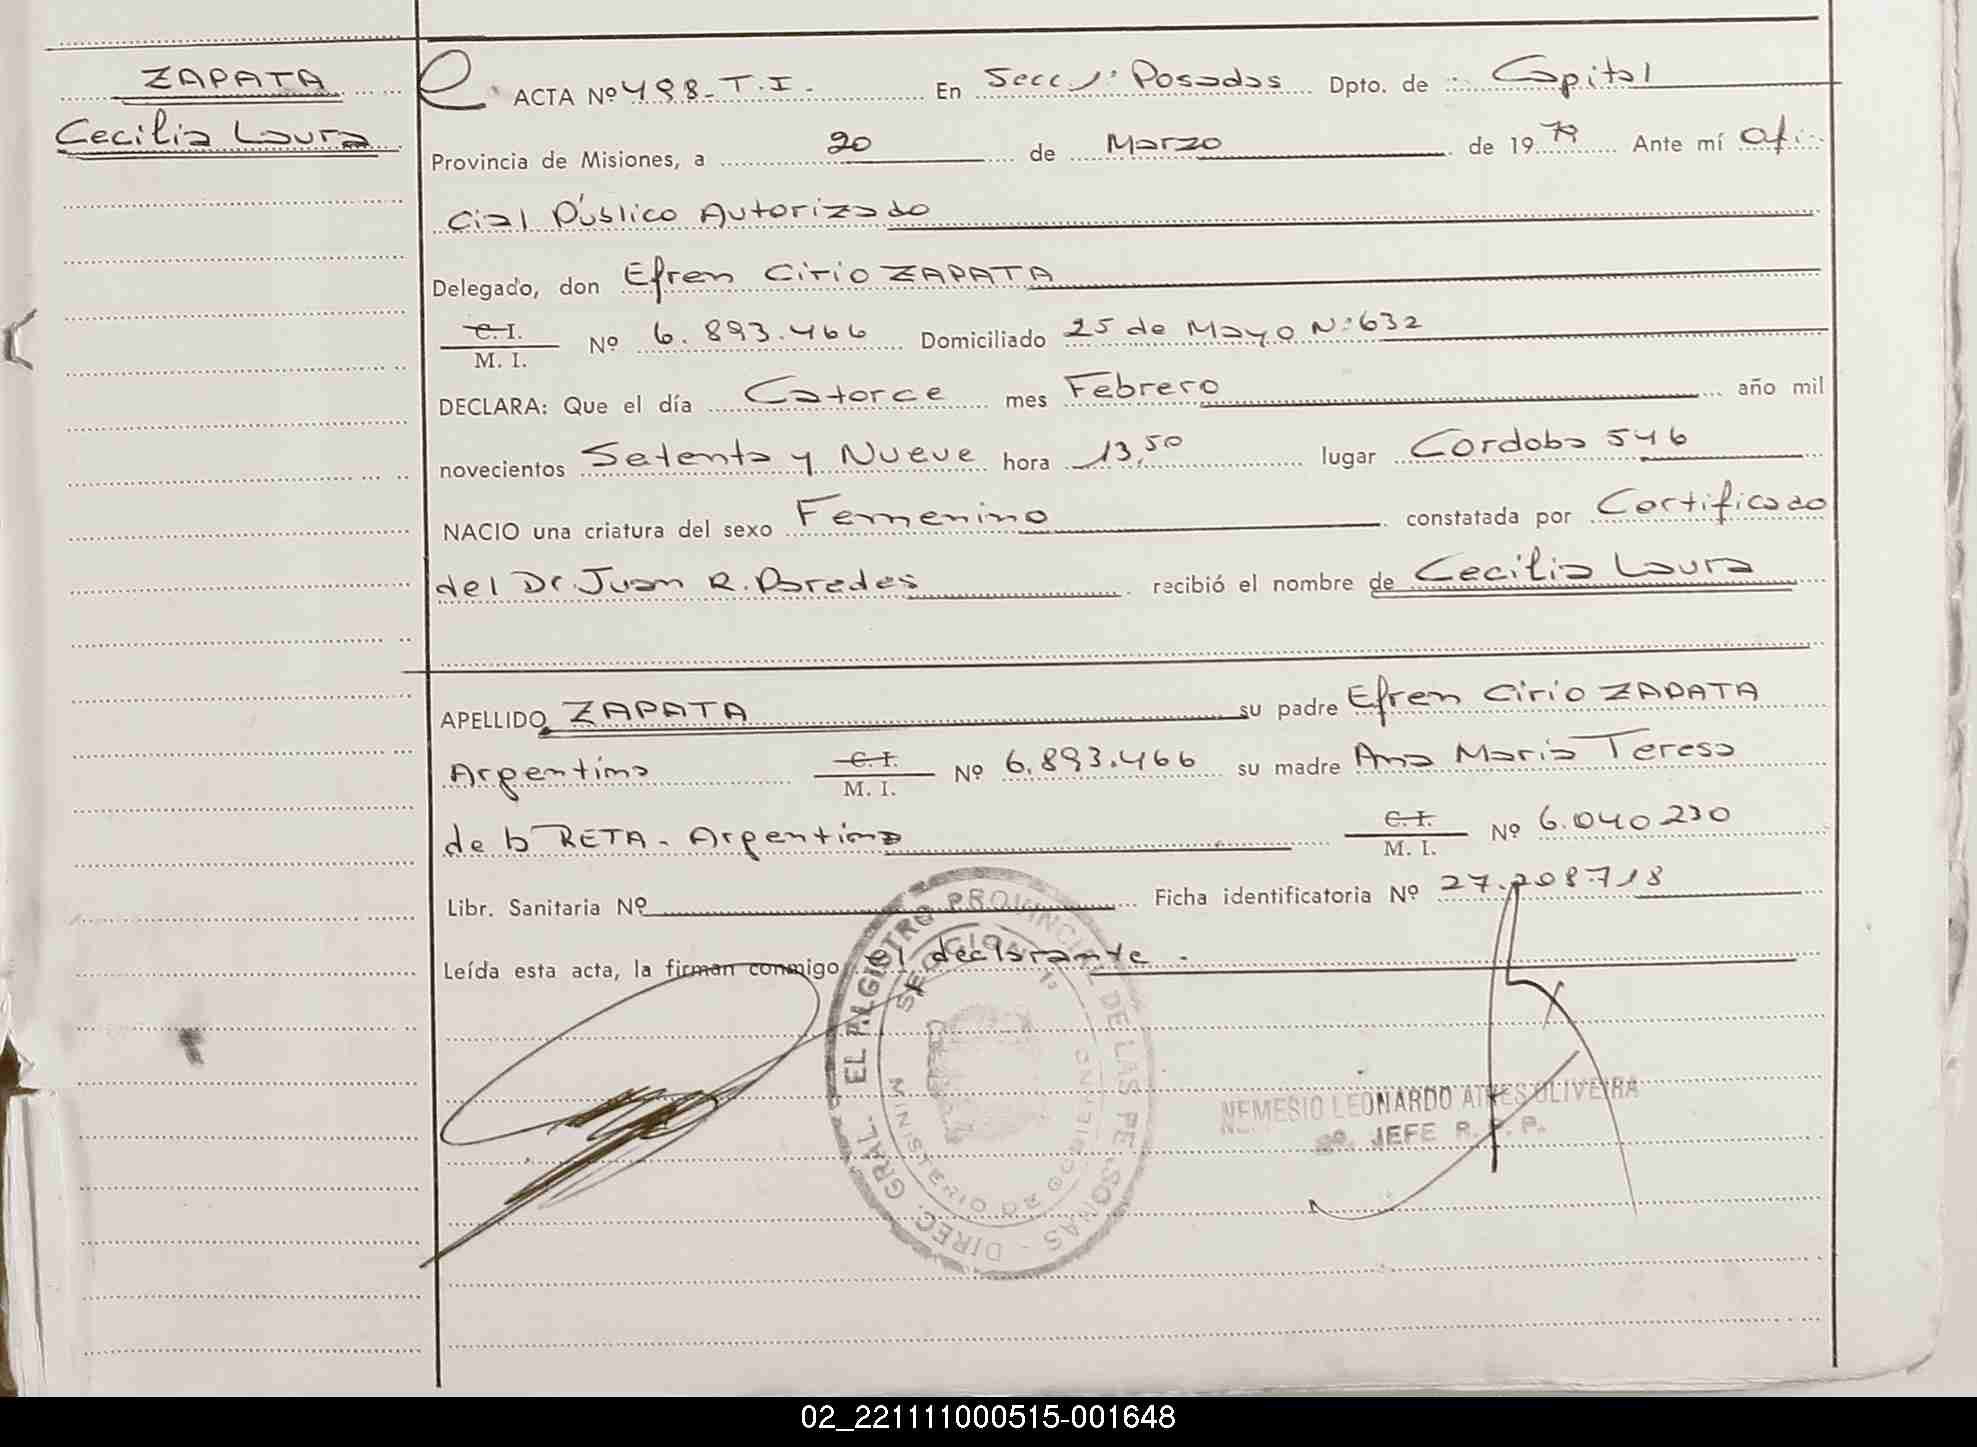 ZAPATA
Cecilia Laura
ACTA Nº 498-T.I. En Secc 1ª Posadas Dpto. de Capital
Provincia de Misiones, a 20 de Marzo de 1979 Ante mí Ofi
cial Público Autorizado
Delegado, don Efren Cirio ZAPATA
C. I.
M. I. Nº 6.893.466 Domiciliado 25 de Mayo Nº 632
DECLARA: Que el día Catorce mes Febrero año mil
novecientos Setenta y Nueve hora 13,50 lugar Cordoba 546
NACIO una criatura del sexo Femenino constatada por Certificado
del Dr. Juan R. Paredes recibió el nombre de Cecilia Laura
APELLIDO ZAPATA su padre Efren Cirio ZAPATA
Argentino C. I. M. I. Nº 6.893.466 su madre Ana Maria Teresa
de la RETA - Argentina C. I. M. I. Nº 6.040.230
Libr. Sanitaria Nº Ficha identificatoria Nº 27.208.718
Leída esta acta, la firman conmigo el declarante.
DIREC. GRAL. EL REGISTRO PROVINCIAL DE LAS PERSONAS
SECCION 1ª
MINISTERIO DE GOBIERNO
NEMESIO LEONARDO AIRES OLIVEIRA
2º. JEFE R. P. P.
02_221111000515-001648